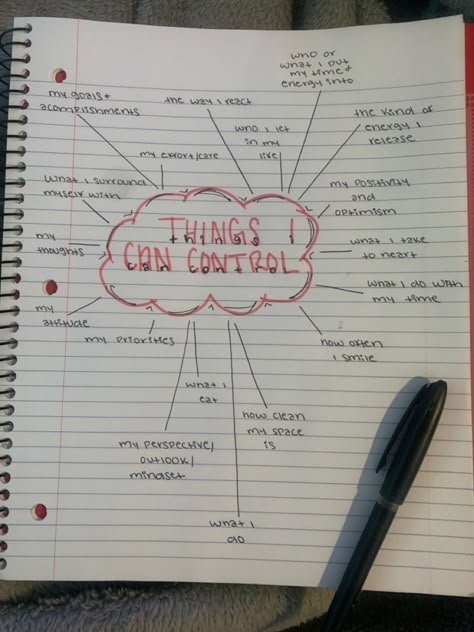 THINGS I
things I
CAN CONTROL
can control
who or
what i put
my time +
energy into
the kind of
energy i
release
my positivity
and
optimism
what i take
to heart
what i do with
my time
how often
i smile
how clean
my space
is
what i
do
what i
eat
my perspective/
outlook/
mindset
my priorities
my
attitude
my
thoughts
what i surround
myself with
my goals +
acomplishments
my effort/care
the way i react
who i let
in my
life